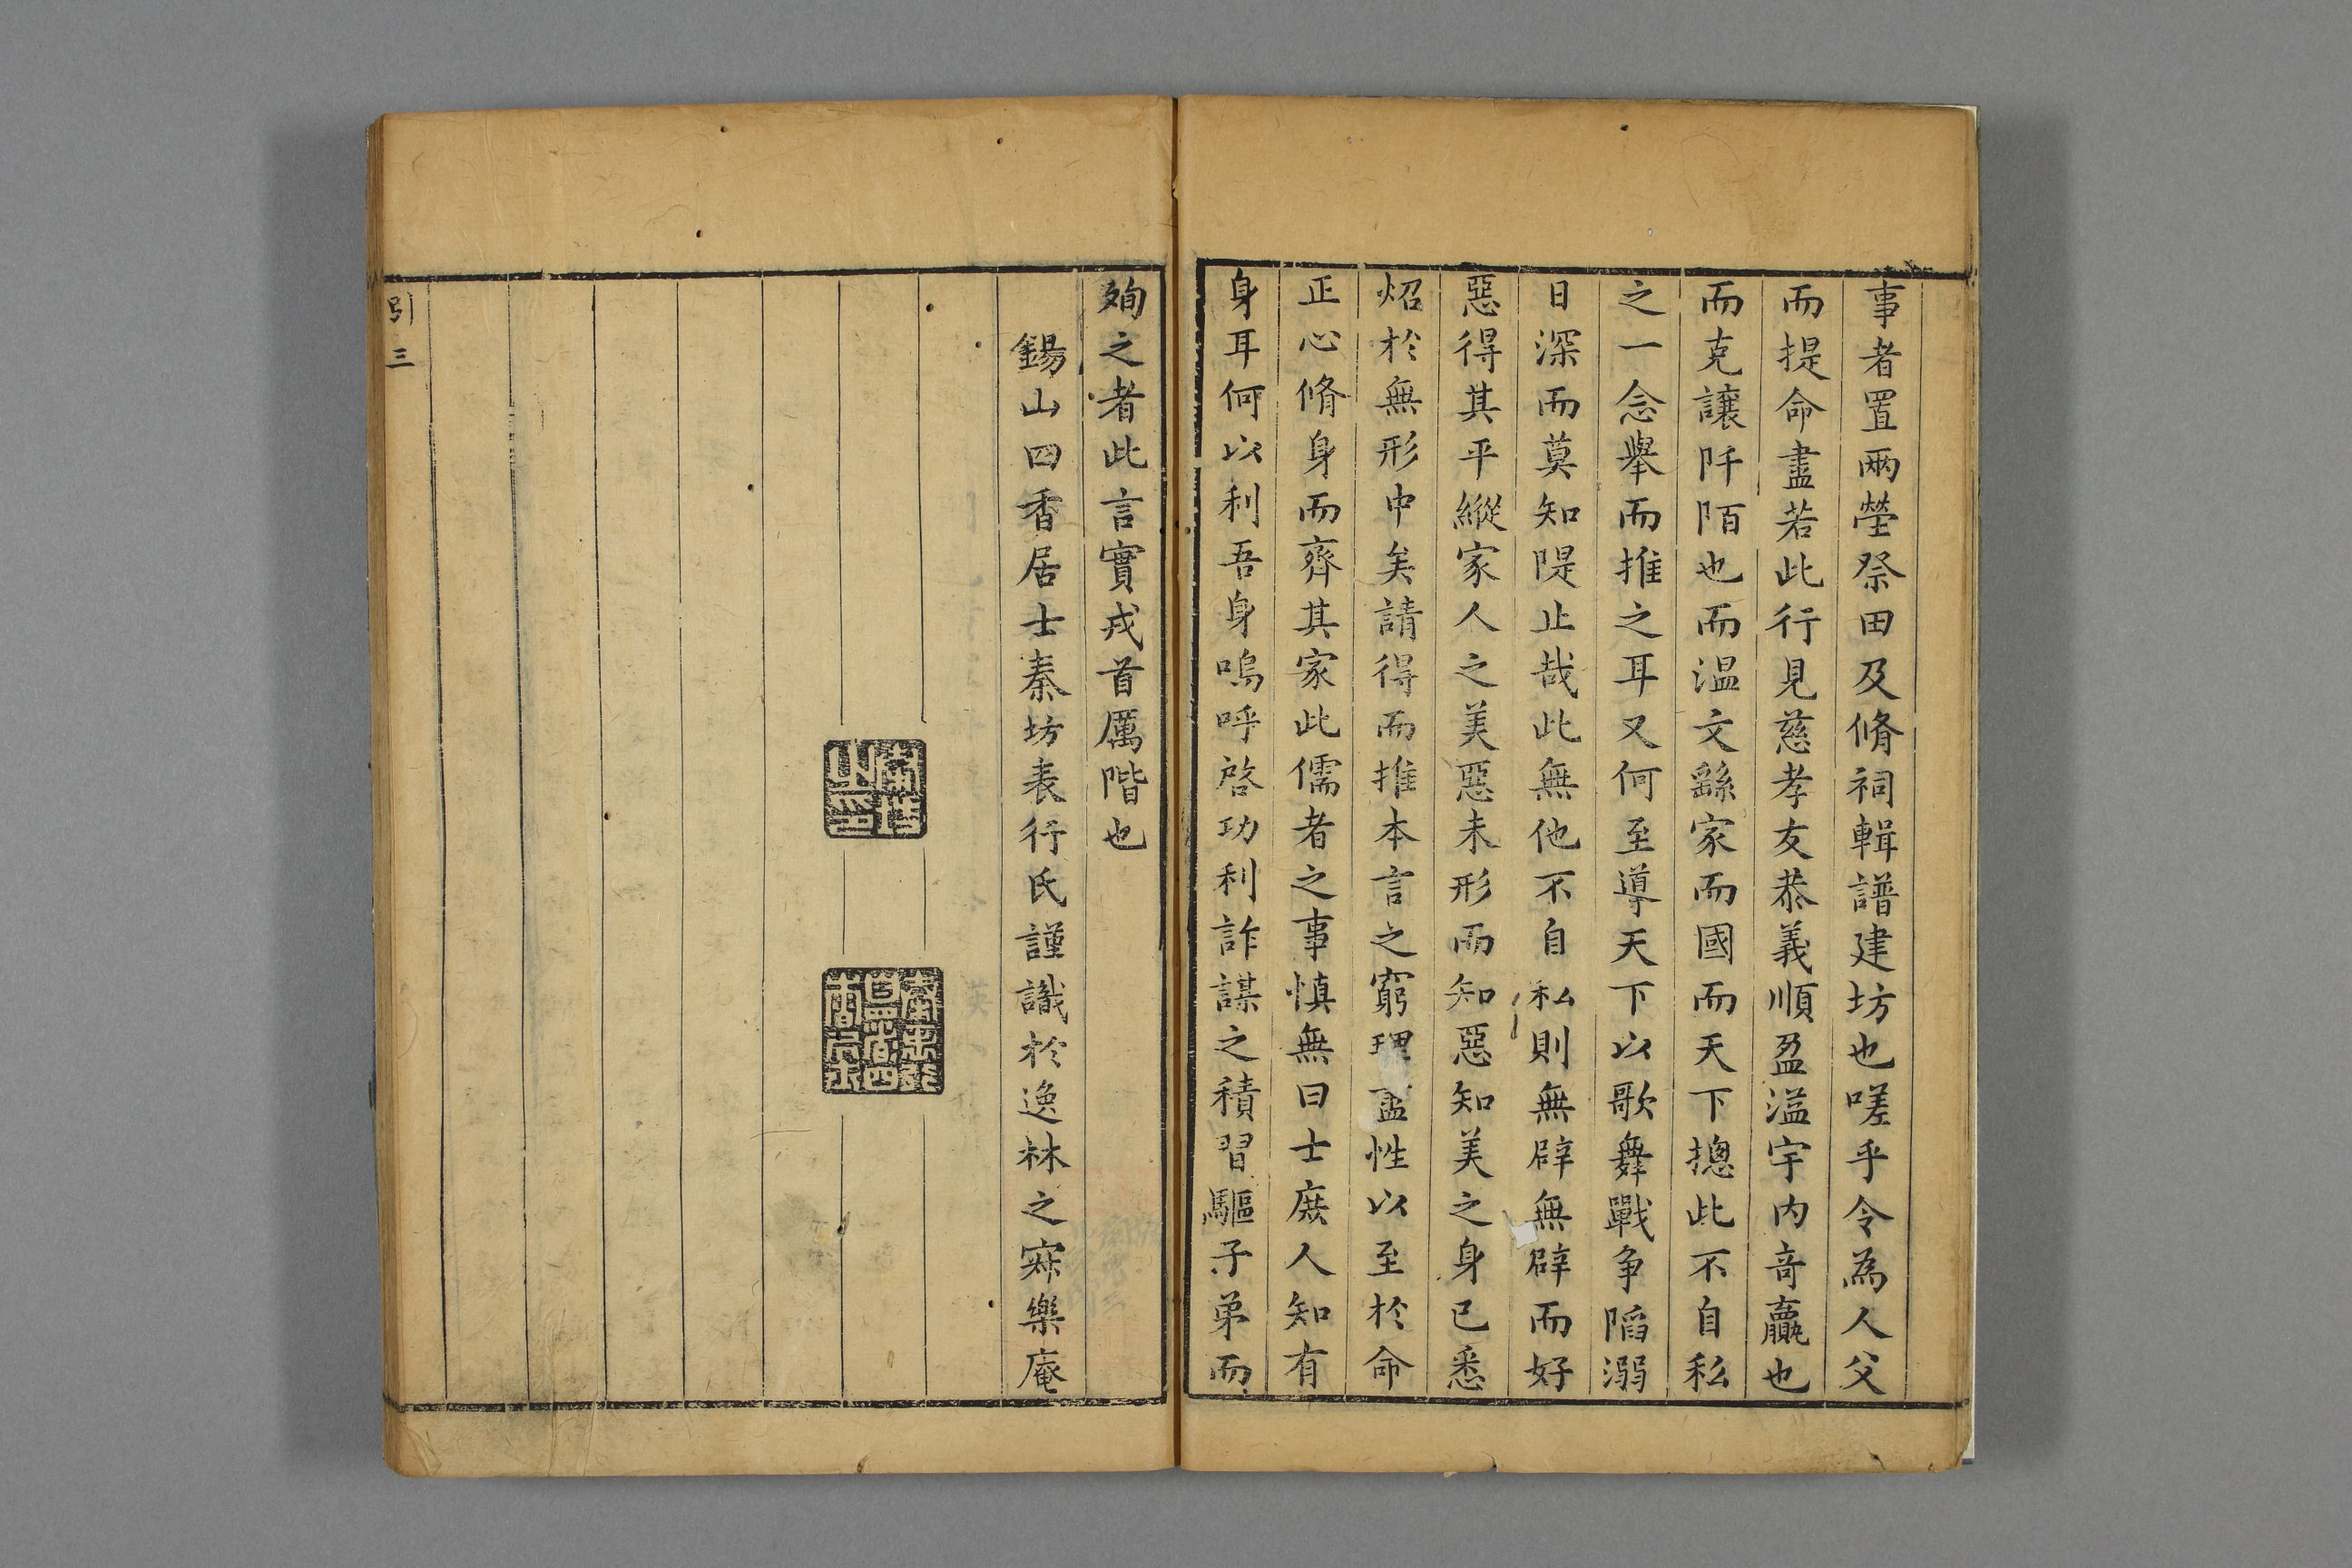 事者置兩塋祭田及脩祠輯譜建坊也嗟乎令為人父
而提命盡若此行見慈孝友恭義順盈溢宇内竒贏也
而克讓阡陌也而温文繇家而國而天下摠此不自私
之一念舉而推之耳又何至導天下以歌舞戰争陷溺
日深而莫知隄止哉此無他不自私則無辟無辟而好
惡得其平縱家人之美惡未形而知惡知美之身已悉
炤於無形中矣請得而推本言之窮理盡性以至於命
正心脩身而齊其家此儒者之事慎無曰士庻人知有
身耳何以利吾身嗚呼啓功利詐謀之積習驅子弟而
殉之者此言實戎首厲階也
錫山四香居士秦坊表行氏謹識於逸林之寐樂庵
引三